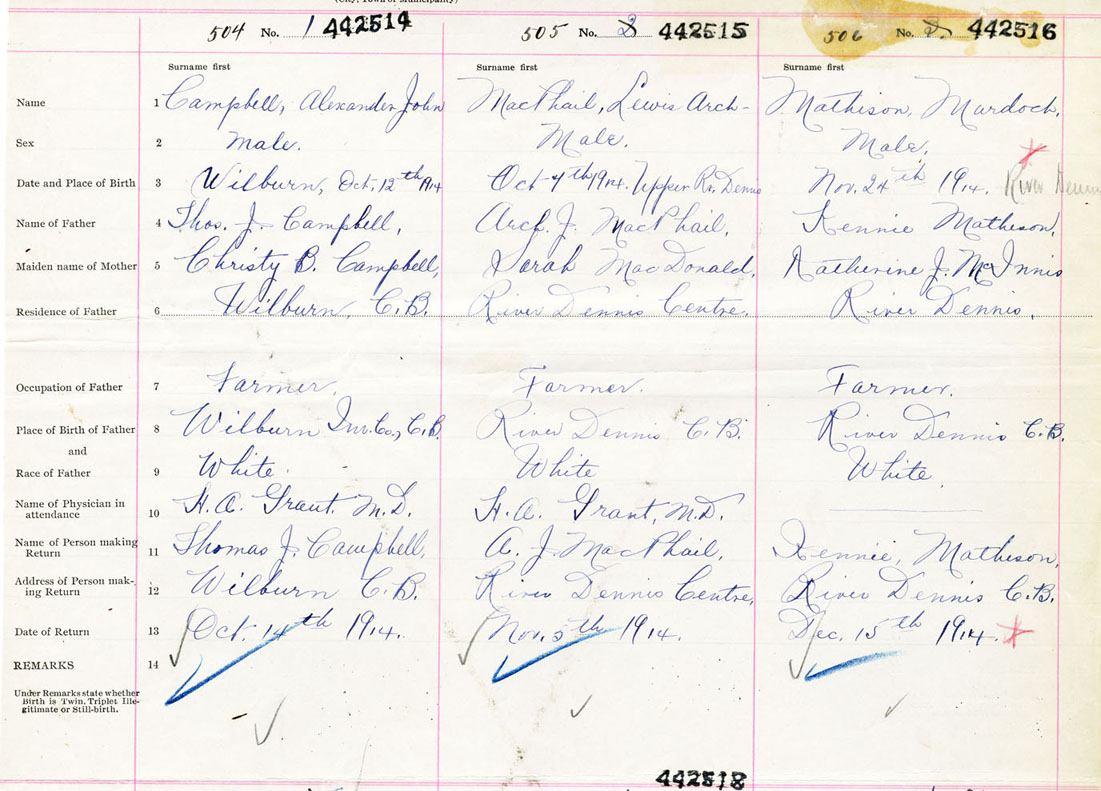 (City, Town or Municipality)
504 No. 1 442514 505 No. 442515 506 No. 442516
Surname first Surname first Surname first
Name 1 Campbell, Alexander John MacPhail, Lewis Arch- Mathison, Murdoch.
Sex 2 Male. Male. Male.
Date and Place of Birth 3 Wilburn, Oct. 12th 1914 Oct 7th 1914. Upper Rr. Dennis Nov. 24th 1914. River Dennis
Name of Father 4 Thos. J. Campbell, Arch. J. MacPhail, Kennie Matheson,
Maiden name of Mother 5 Christy B. Campbell, Sarah MacDonald, Katherine J. McInnis
Residence of Father 6 Wilburn, C.B. River Dennis Centre. River Dennis,
Occupation of Father 7 Farmer. Farmer. Farmer.
Place of Birth of Father 8 Wilburn Inv. Co., C.B. River Dennis C.B. River Dennis C.B.
and
Race of Father 9 White. White White.
Name of Physician in
attendance 10 H. A. Grant. M.D. H. A. Grant, M.D.
Name of Person making
Return 11 Thomas J. Campbell, A. J. MacPhail, Kennie, Matheson,
Address of Person mak-
ing Return 12 Wilburn C.B. River Dennis Centre, River Dennis C.B.
Date of Return 13 Oct. 14th 1914. Nov. 5th 1914. Dec. 15th 1914.
REMARKS 14
Under Remarks state whether
Birth is Twin, Triplet Ille-
gitimate or Still-birth.
442518